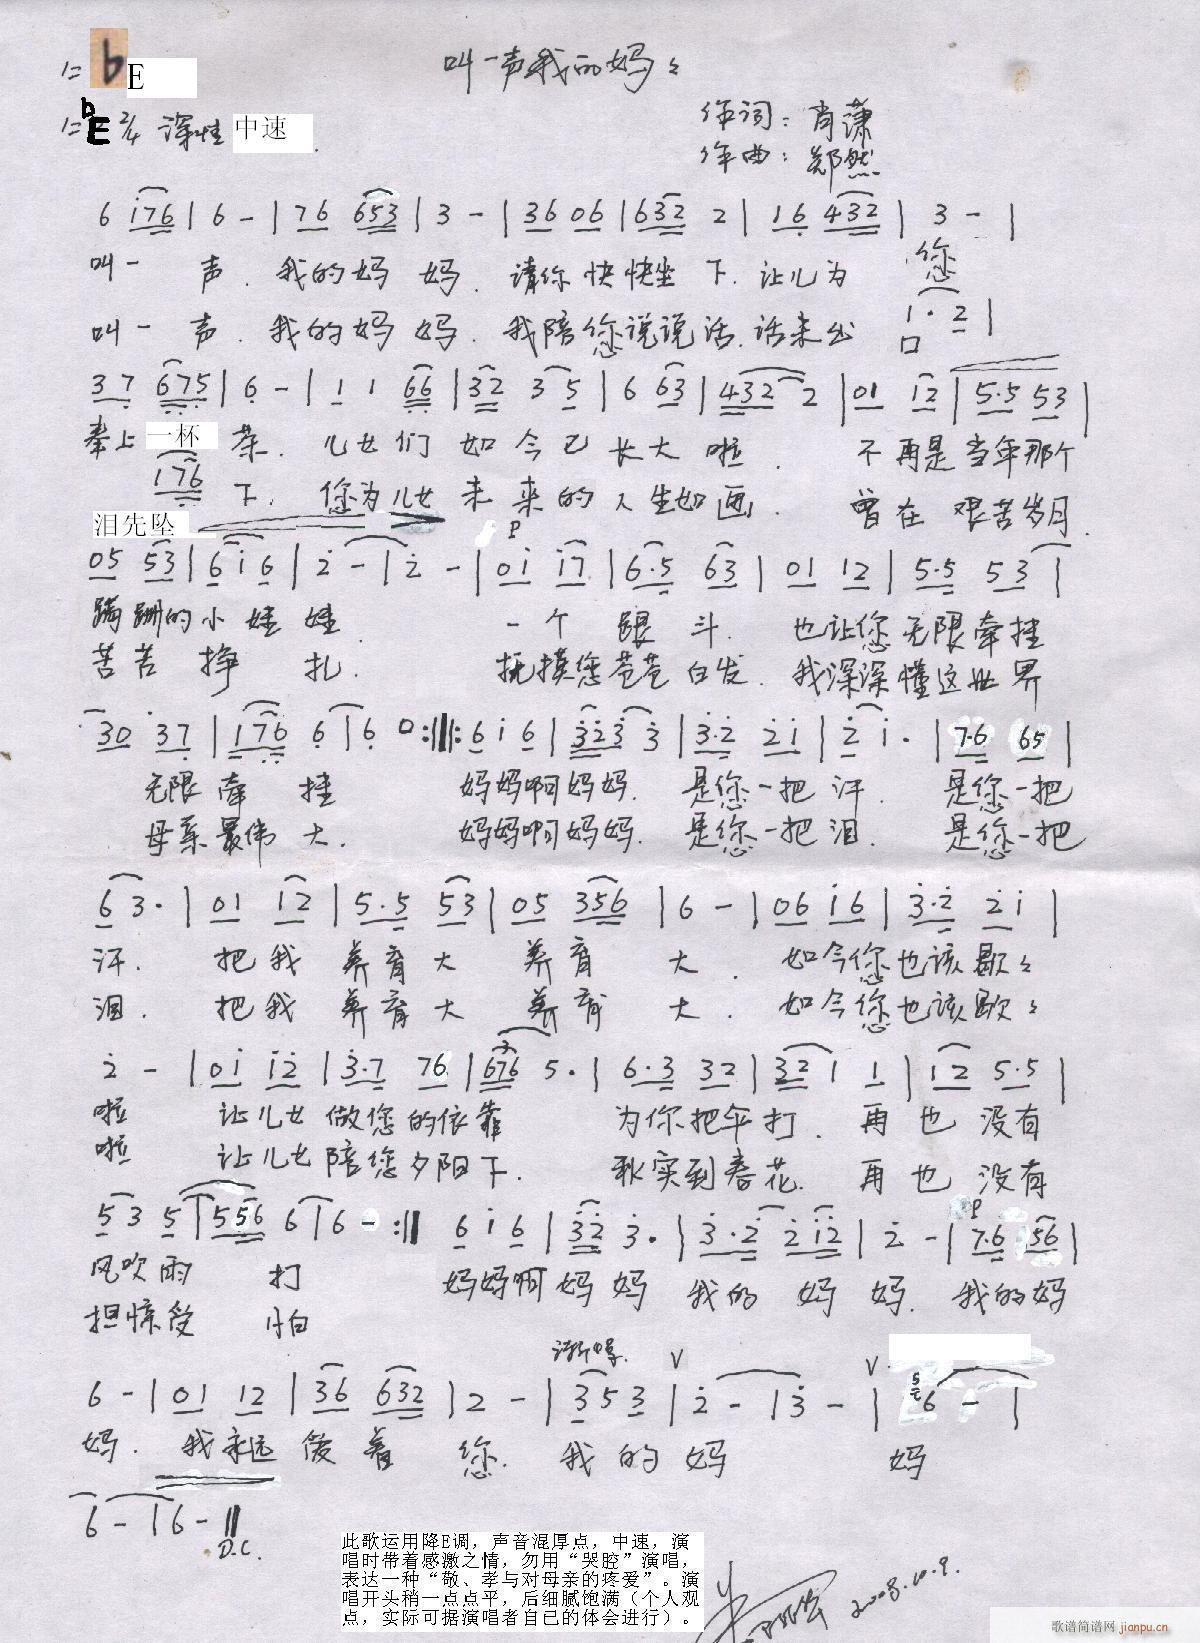 1=bE
叫一声我的妈妈
1=bE 2/4 深情 中速
作词：肖潇
作曲：郑然
6 i76 | 6 - | 76 653 | 3 - | 36 06 | 632 2 | 16 432 | 3 - |
叫一 声. 我的妈 妈. 请你快快坐下. 让儿为 您
叫一 声. 我的妈妈. 我陪您说说话. 话未出 口
1·2 |
37 675 | 6 - | 1 1 66 | 32 3 5 | 6 63 | 432 2 | 01 12 | 5·5 53 |
奉上一杯 茶. 儿女们 如今已 长大 啦. 不再是当年那个
176
泪先坠 下. 您为儿女未来的人生如画. 曾在 艰苦岁月.
p
05 53 | 6i6 | 2 - | 2 - | 0i i7 | 6·5 63 | 01 12 | 5·5 53 |
蹒跚的小娃娃 一个 跟斗. 也让您无限牵挂
苦苦挣 扎. 抚摸您苍苍白发. 我深深懂这世界
30 37 | 176 6 | 6 0 :||: 6 i 6 | 323 3 | 3·2 2i | 2 i· | 7·6 65 |
无限牵 挂 妈妈啊妈妈. 是您一把 汗. 是您一把
母亲最伟大. 妈妈啊妈妈. 是您一把泪. 是您一把
6 3· | 01 12 | 5·5 53 | 05 356 | 6 - | 06 i6 | 3·2 2i |
汗. 把我 养育大 养育 大. 如今您也该歇歇
泪. 把我 养育大 养育 大. 如今您也该歇歇
2 - | 0i i2 | 3·7 76 | 676 5· | 6·3 32 | 32 1 1 | 12 5·5 |
啦 让儿女做您的依靠 为你把伞打. 再也没有
啦 让儿女陪您夕阳下. 秋实到春花. 再也没有
p
53 5 | 556 6 | 6 - :|| 6 i 6 | 32 3· | 3·2 2i2 | 2 - | 7·6 56 |
风吹雨 打 妈妈啊妈妈 我的 妈妈. 我的妈
担惊受 怕
渐慢. V V
6 - | 01 12 | 36 632 | 2 - | 353 | 2 - | 3 - | 6 - |
妈. 我永远爱着 您. 我的妈 妈
6 - | 6 - ||
D.C.
此歌运用降E调，声音混厚点，中速，演
唱时带着感激之情，勿用“哭腔”演唱，
表达一种“敬、孝与对母亲的疼爱”。演
唱开头稍一点点平，后细腻饱满（个人观
点，实际可据演唱者自己的体会进行）。
2008.10.9.
歌谱简谱网 jianpu.cn